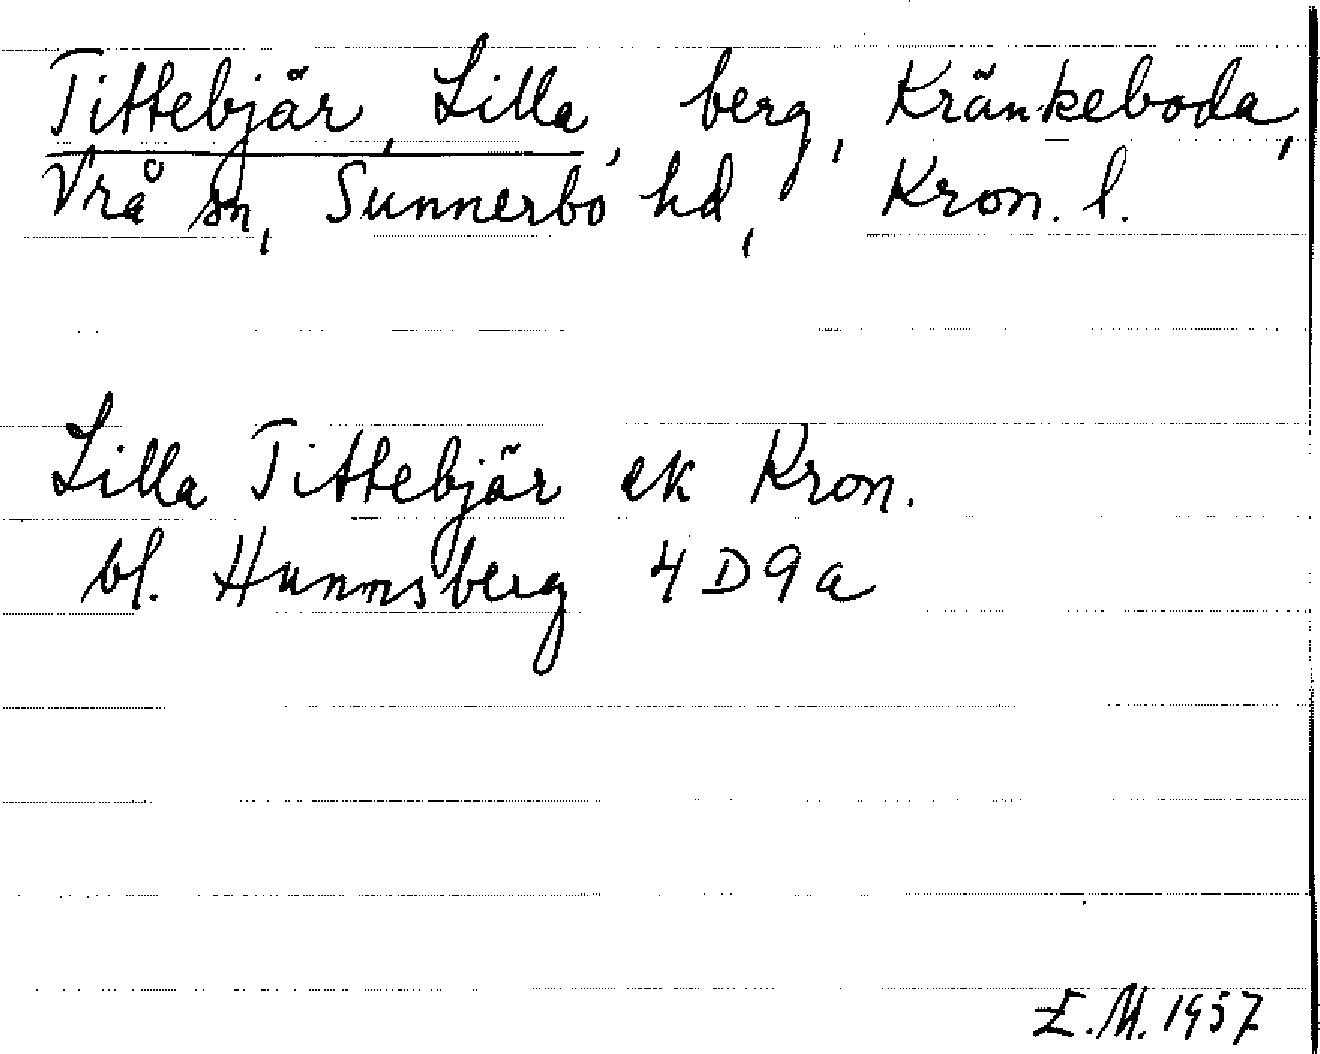 Tittebjär, Lilla, berg, Kränkeboda,
Vrå sn, Sunnerbo hd, Kron. l.
Lilla Tittebjär ek Kron.
bl. Hunnsberg 4 D 9 a
E.M. 1957